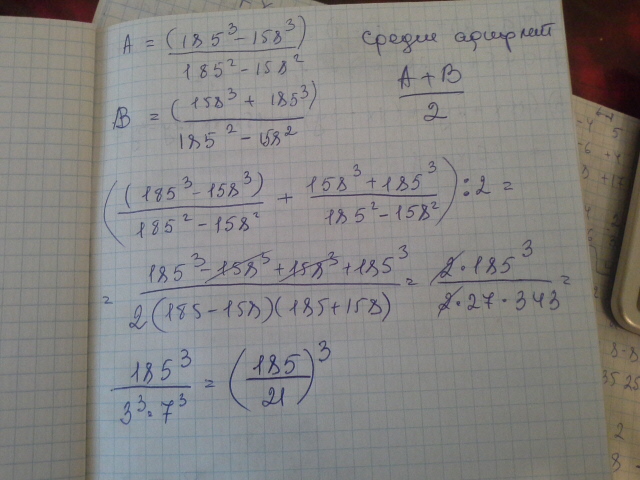 A = (185³-158³) / 185²-158² средне адирлет
B = (158³ + 185³) / 185² - 158² A+B / 2
((185³-158³) / 185²-158² + 158³+185³ / 185²-158²) : 2 =
= 185³-158³+158³+185³ / 2(185-158)(185+158) = 2·185³ / 2·27·343 =
185³ / 3³·7³ = (185/21)³